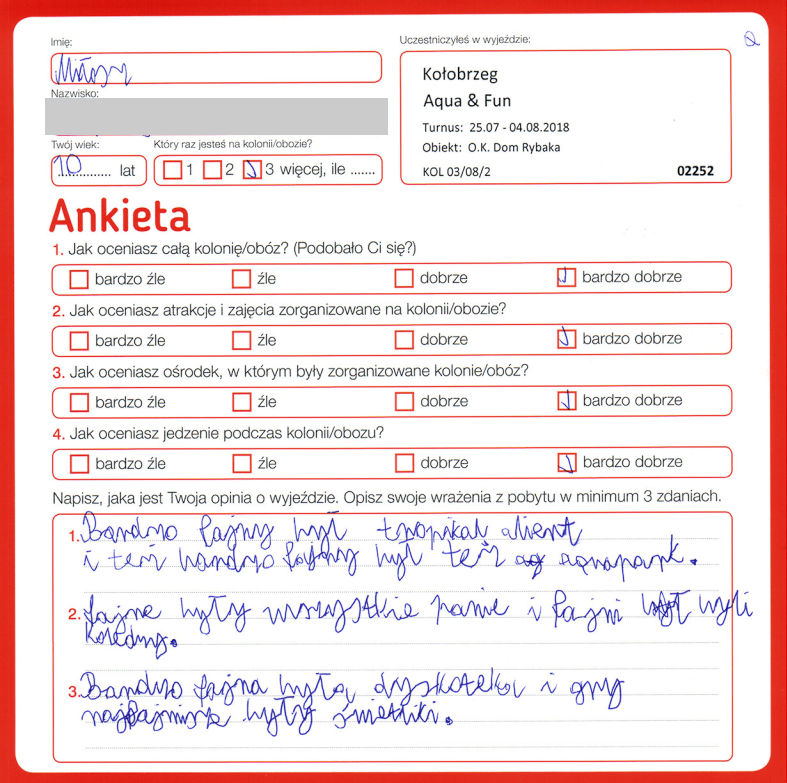 Imię:
Uczestniczyłeś w wyjeździe:
Miłosz
Nazwisko:
Kołobrzeg
Aqua & Fun
Turnus: 25.07 - 04.08.2018
Obiekt: O.K. Dom Rybaka
KOL 03/08/2
02252
Twój wiek:
Który raz jesteś na kolonii/obozie?
10 lat
1 2 3 więcej, ile .......
Ankieta
1. Jak oceniasz całą kolonię/obóz? (Podobało Ci się?)
bardzo źle źle dobrze bardzo dobrze
2. Jak oceniasz atrakcje i zajęcia zorganizowane na kolonii/obozie?
bardzo źle źle dobrze bardzo dobrze
3. Jak oceniasz ośrodek, w którym były zorganizowane kolonie/obóz?
bardzo źle źle dobrze bardzo dobrze
4. Jak oceniasz jedzenie podczas kolonii/obozu?
bardzo źle źle dobrze bardzo dobrze
Napisz, jaka jest Twoja opinia o wyjeździe. Opisz swoje wrażenia z pobytu w minimum 3 zdaniach.
1. Bardzo fajny był tropikal
i też bardzo fajny był też aquapark.
2. fajne były wszystkie panie i fajni byli
koledzy.
3. Bardzo fajna była dyskoteka i gry
najfajniejsze były świetliki.